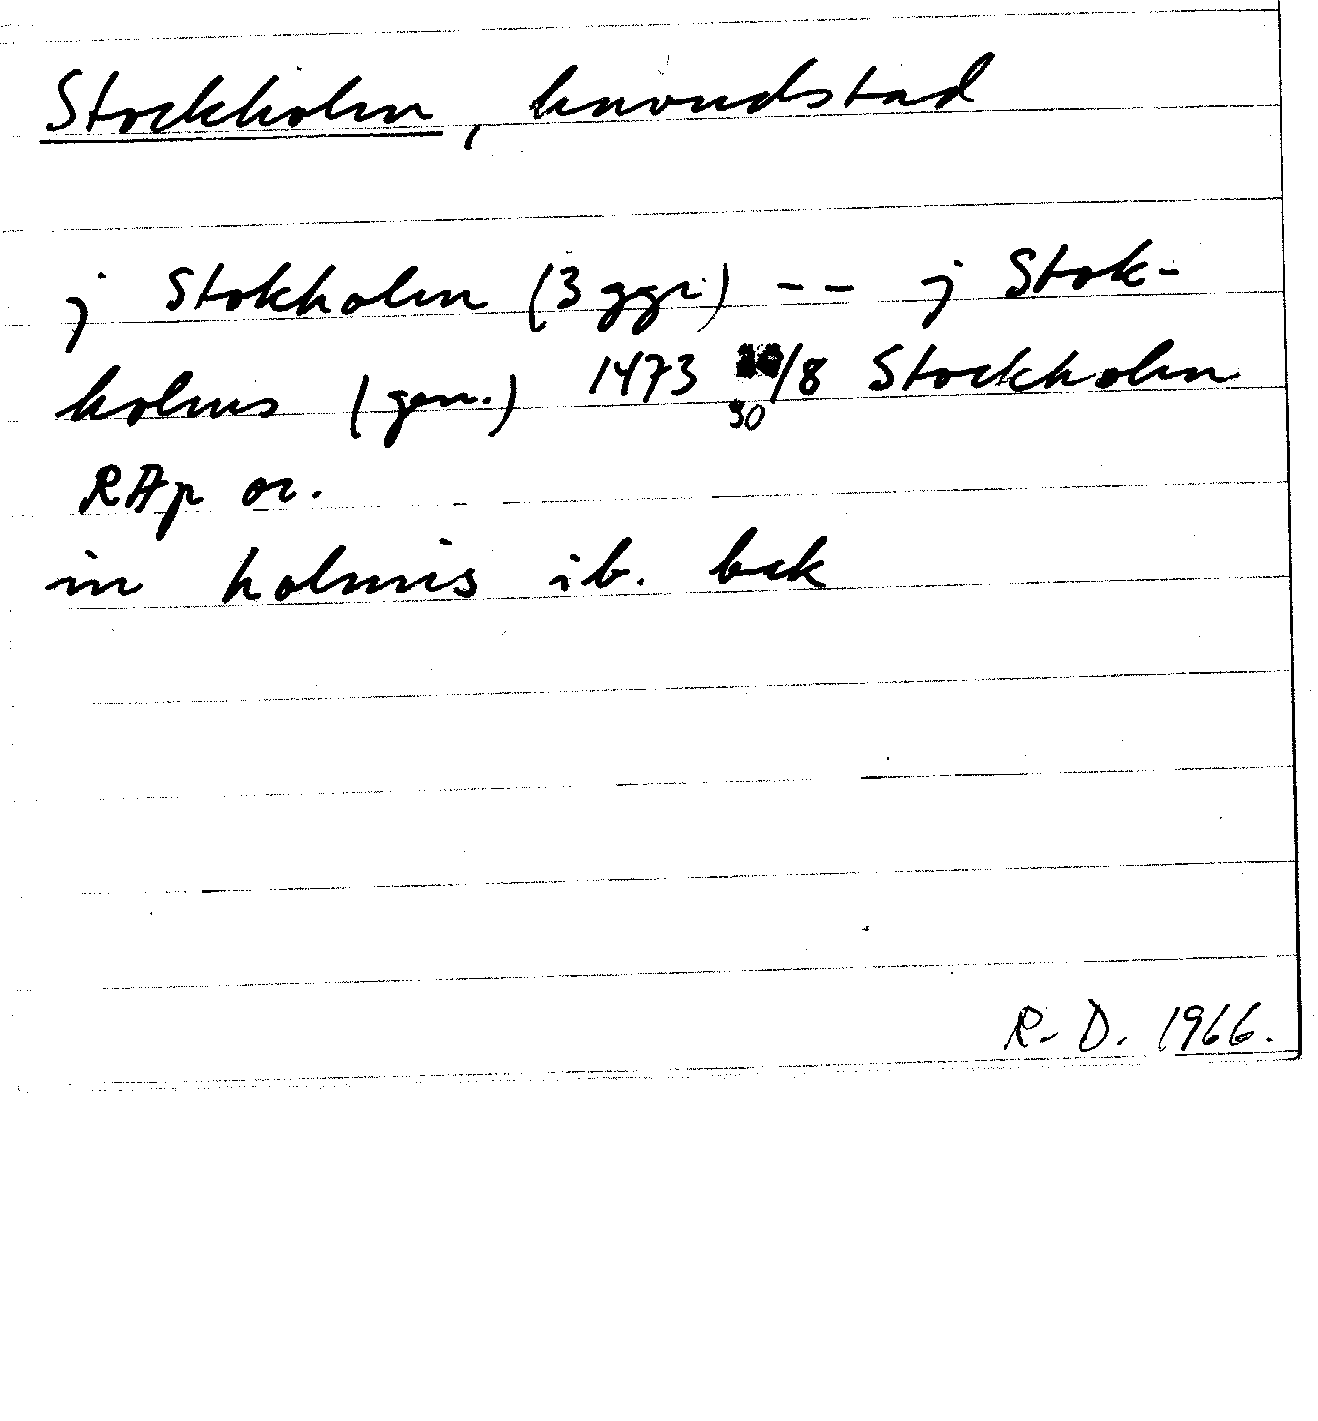 Stockholm, huvudstad
j Stokholm (3 ggr) -- j Stok-
holms (gen.) 1473 /8 Stockholm
30
RAp or.
in holmis ib. bak
R. D. 1966.